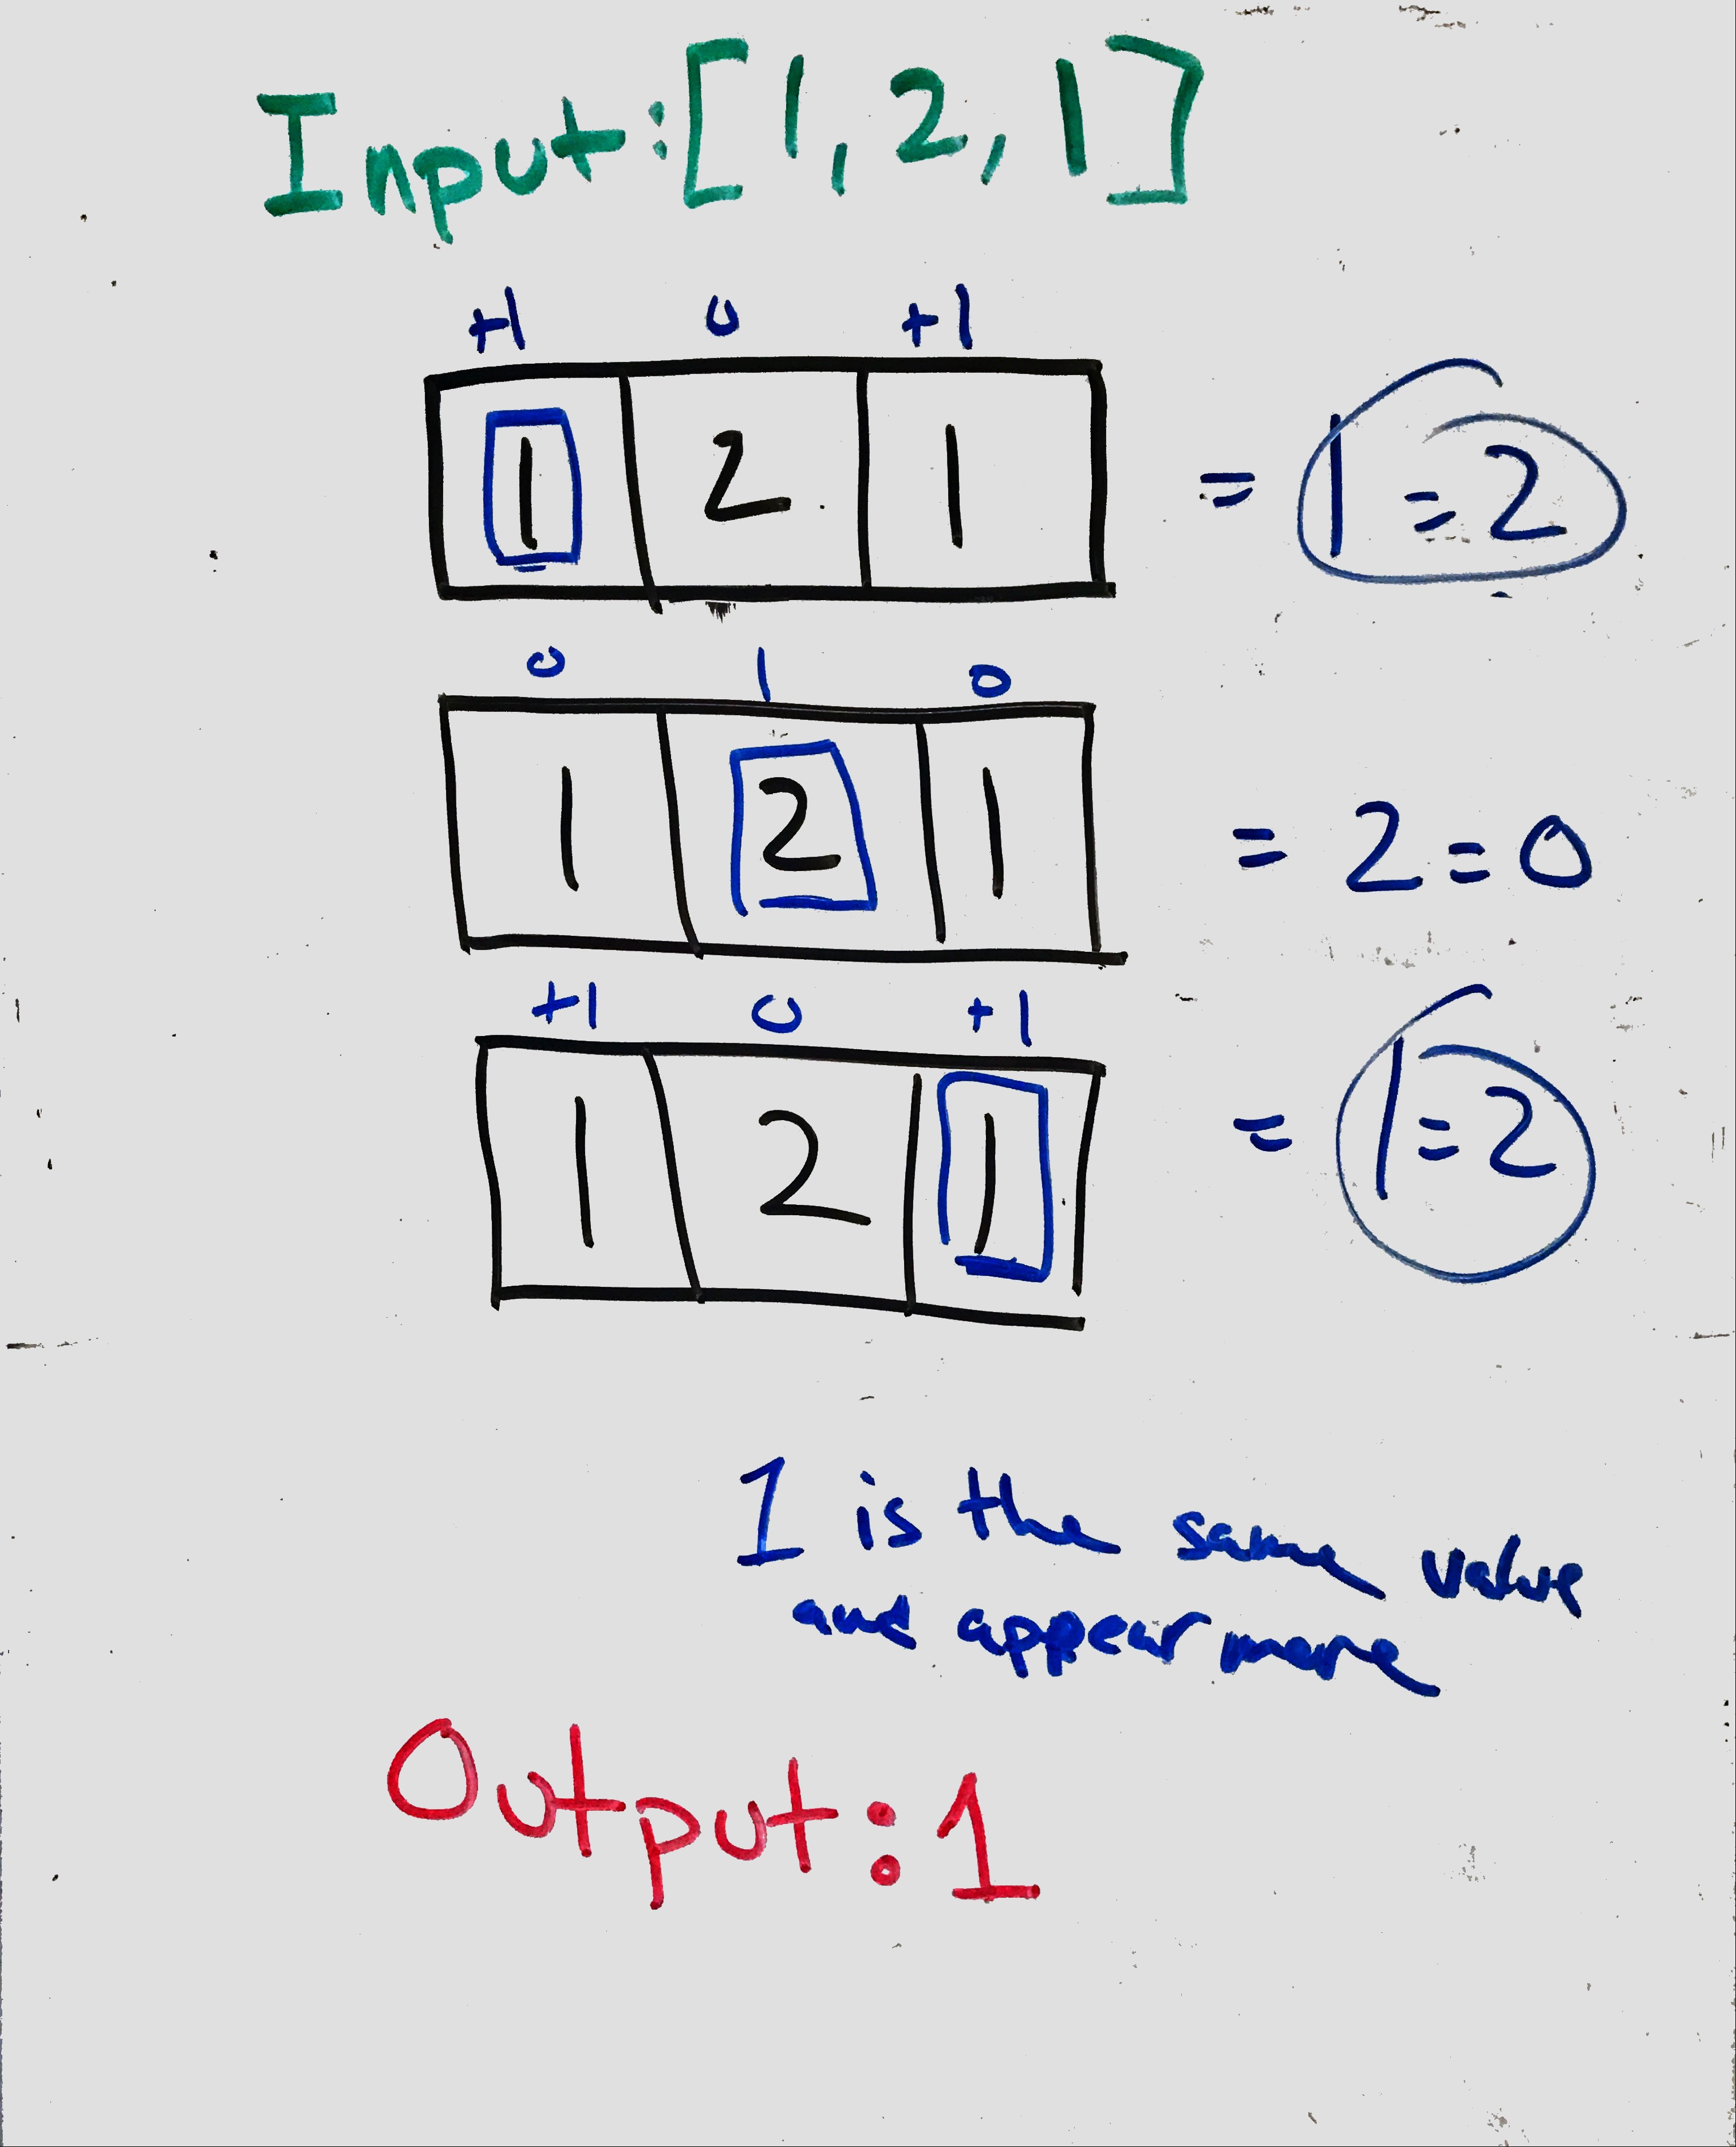 Input:[1,2,1]
+1 0 +1
1 2 1 = 1=2
0 1 0
1 2 1 = 2=0
+1 0 +1
1 2 1 = 1=2
1 is the same value
and appear more
Output:1